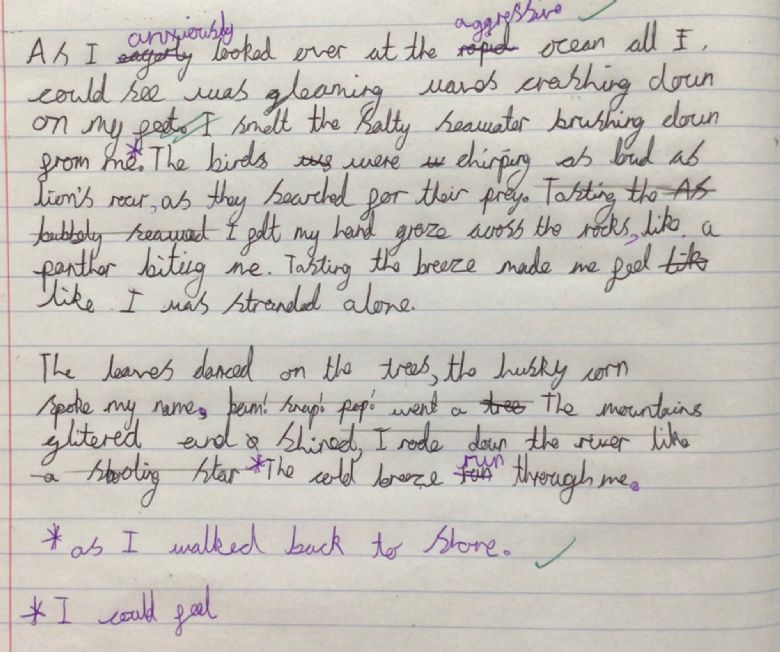 anxiously aggressive
As I eagerly looked over at the rapid ocean all I
could see was gleaming waves crashing down
on my feet. I smelt the salty seawater brushing down
from me*. The birds were chirping as loud as
lion's roar, as they searched for their prey. Tasting the As
bubbly seaweed I felt my hand graze across the rocks, like a
panther biting me. Tasting the breeze made me feel like
like I was stranded alone.
The leaves danced on the trees, the husky corn
spoke my name, bam! snap! pop! went a tree The mountains
glitered and shined, I rode down the river like
a shooting star *The cold breeze run through me.
*as I walked back to shore.
*I could feel